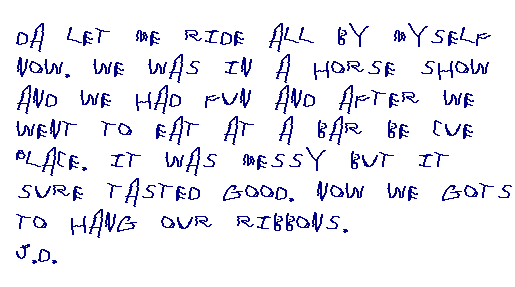 DA LET ME RIDE ALL BY MYSELF
NOW. WE WAS IN A HORSE SHOW
AND WE HAD FUN AND AFTER WE
WENT TO EAT AT A BAR BE CUE
PLACE. IT WAS MESSY BUT IT
SURE TASTED GOOD. NOW WE GOTS
TO HANG OUR RIBBONS.
J.D.